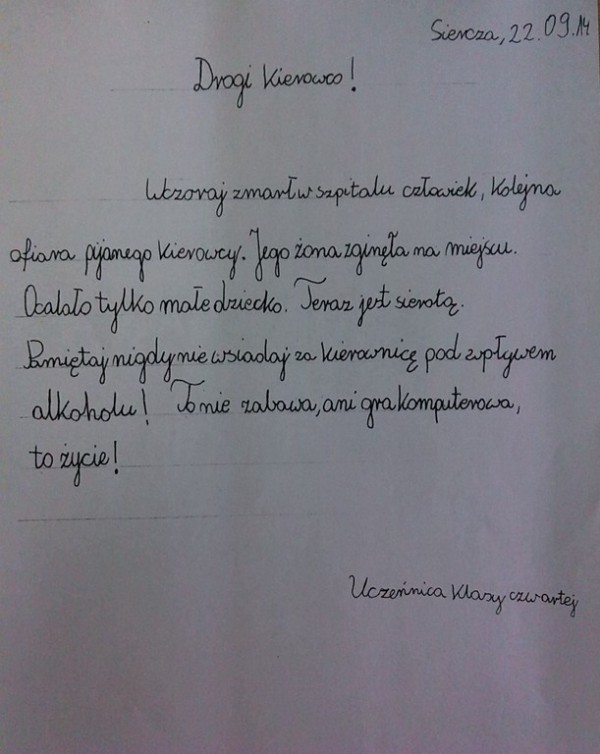 Siercza, 22.09.14
Drogi Kierowco!
Wczoraj zmarł w szpitalu człowiek, kolejna
ofiara pijanego kierowcy. Jego żona zginęła na miejscu.
Ocalało tylko małe dziecko. Teraz jest sierotą.
Pamiętaj nigdy nie wsiadaj za kierownicę pod wpływem
alkoholu! To nie zabawa, ani gra komputerowa,
to życie!
Uczennica klasy czwartej